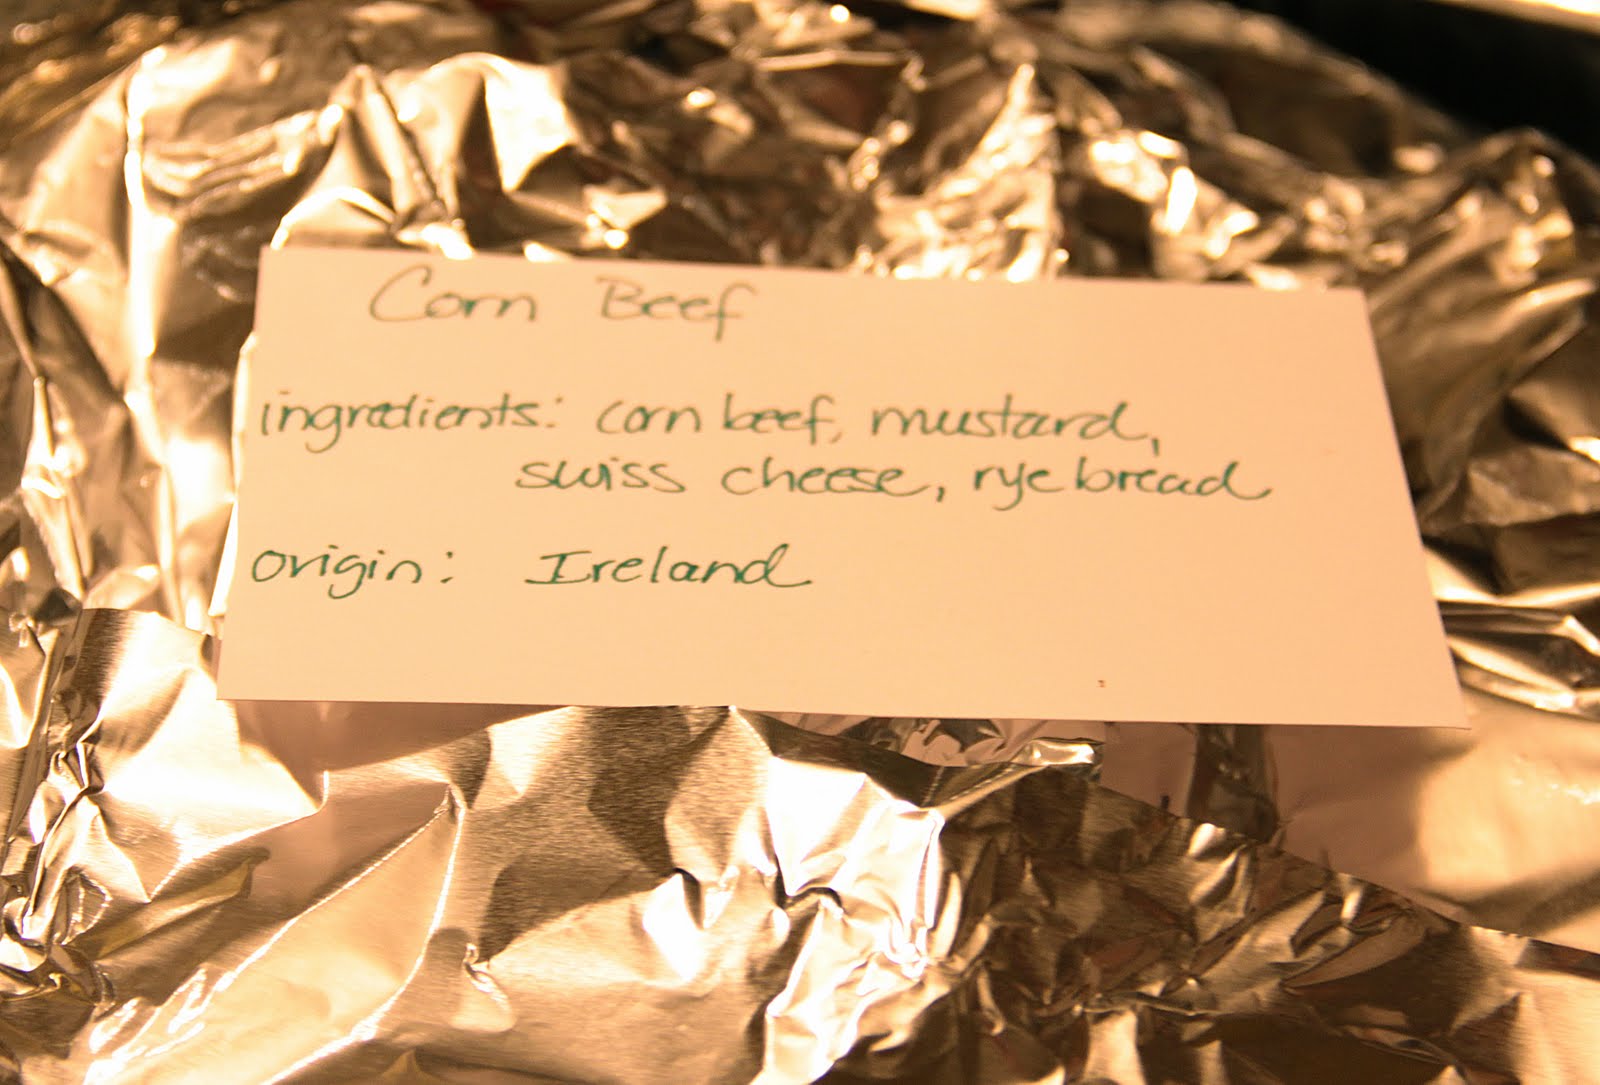 Corn Beef
ingredients: corn beef, mustard,
swiss cheese, rye bread
origin: Ireland